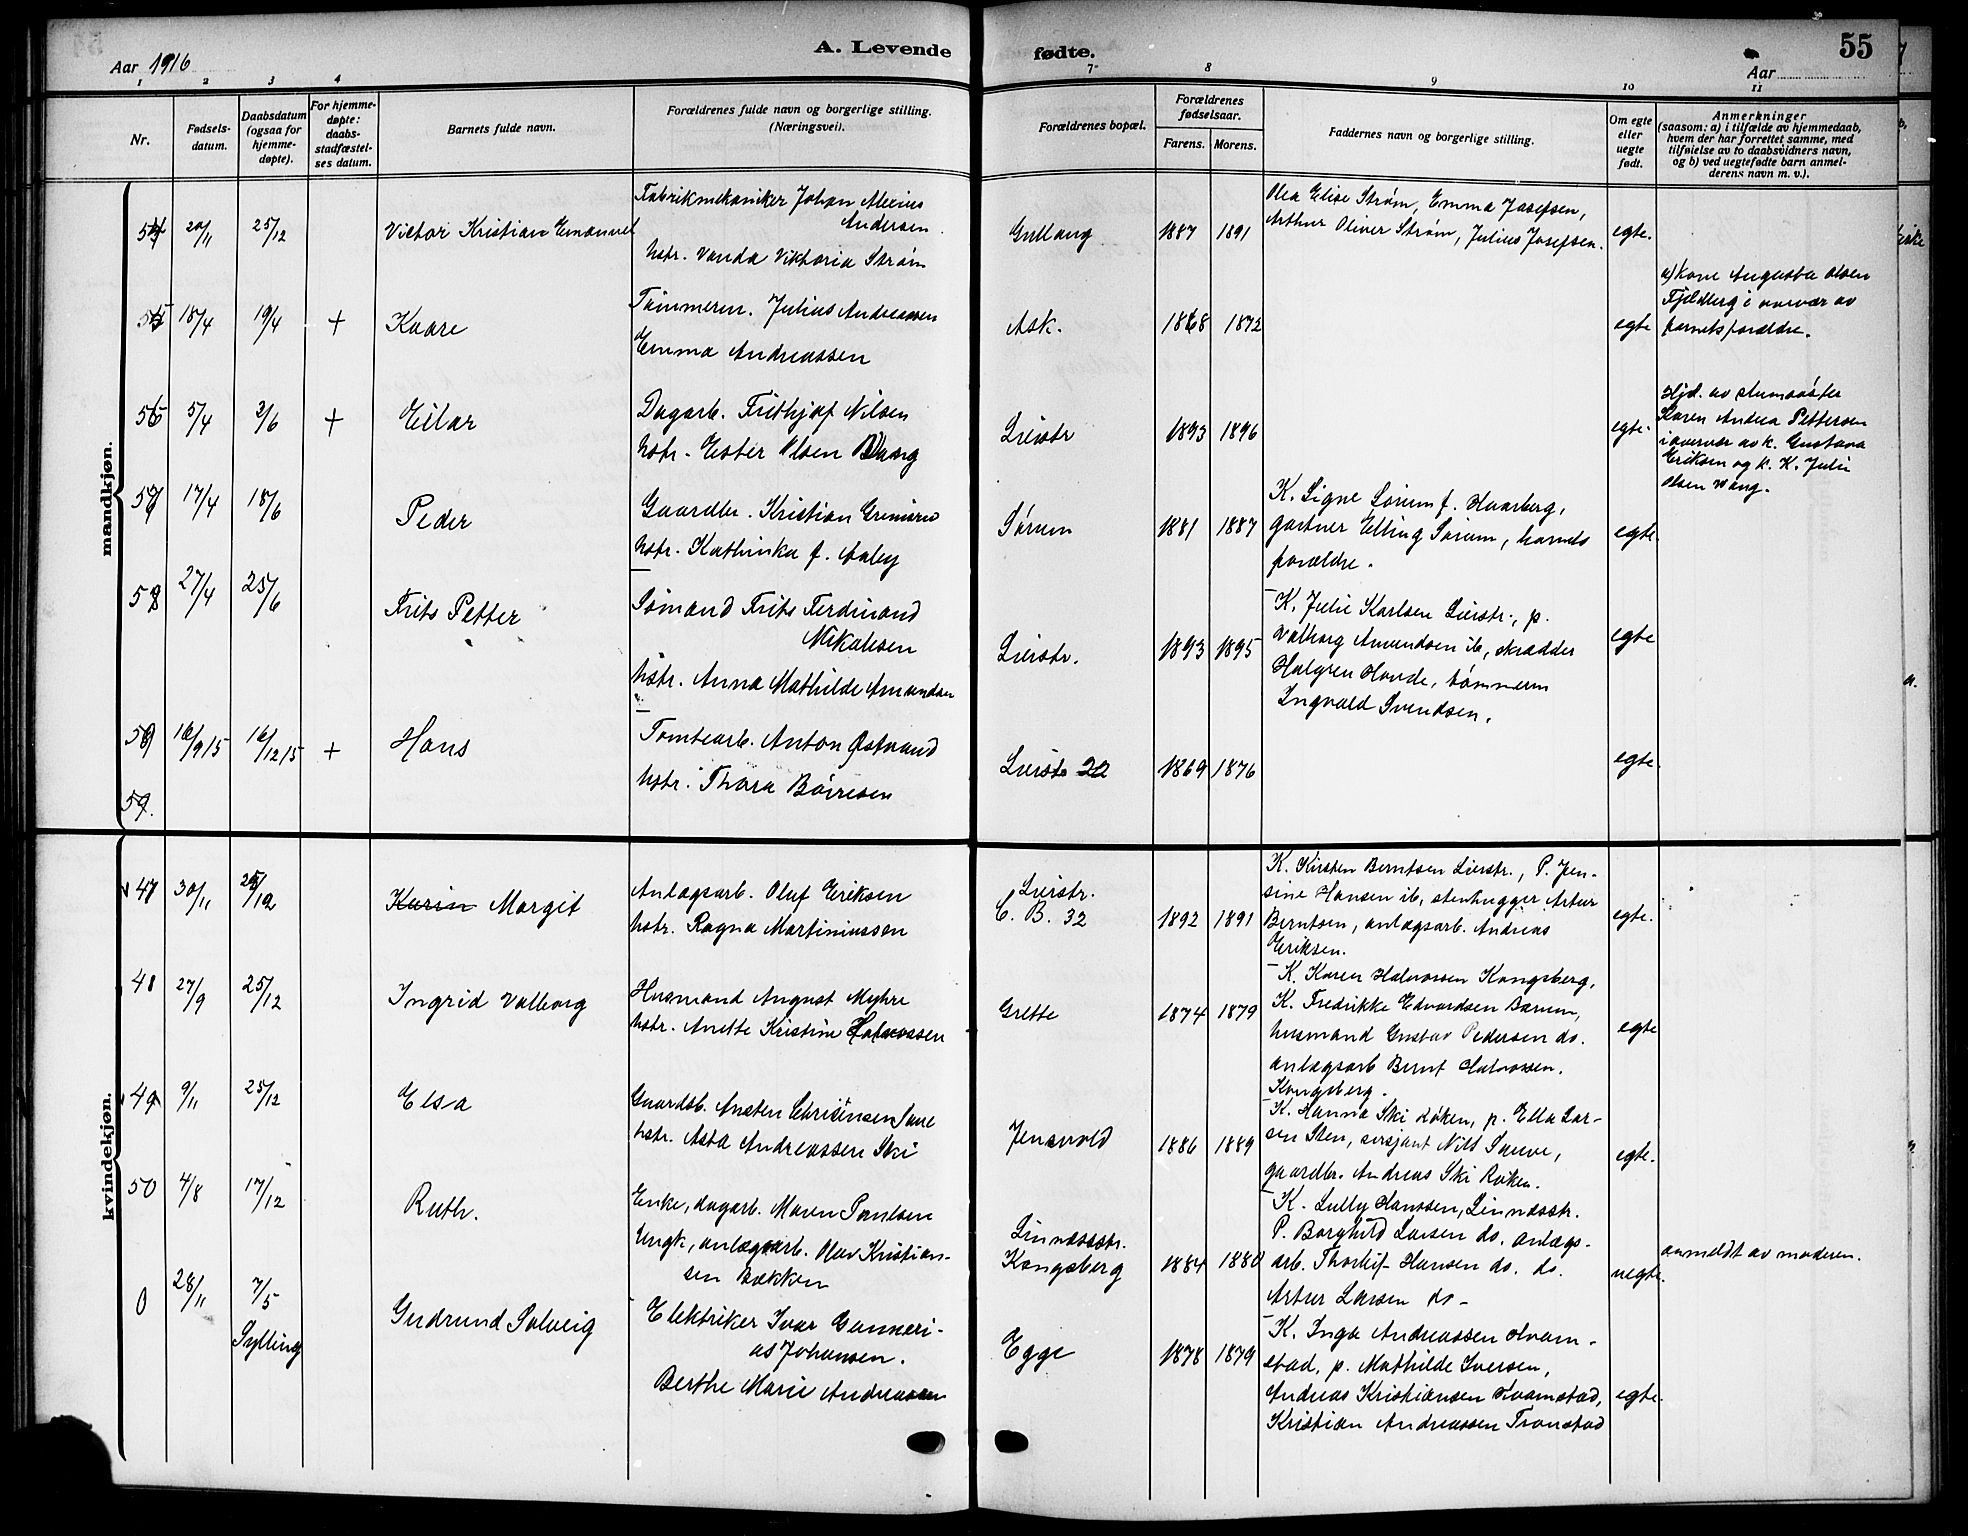 A. Levende
fødte.
55
Aar 1916
Aar
1
2
3
4
7
8
9
10
11
Nr.
Fødsels-
datum.
Daabsdatum
(ogsaa for
hjemme-
døpte).
For hjemme-
døpte:
daabs-
stadfæstel-
ses datum.
Barnets fulde navn.
Forældrenes fulde navn og borgerlige stilling.
(Næringsvei).
Forældrenes bopæl.
Forældrenes
fødselsaar.
Farens. Morens.
Faddernes navn og borgerlige stilling.
Om egte
eller
uegte
født.
Anmerkninger
(saasom: a) i tilfælde av hjemmedaab,
hvem der har forrettet samme, med
tilføielse av to daabsvidners navn,
og b) ved uegtefødte barn anmel-
derens navn m. v.).
mandkjøn.
20/11 25/12 Victor Kristian Emanuel
Fabrikmekaniker Johan Alexius
Andersen
hstr. Vanda Viktoria Strøm
Gullaug 1887 1891
Olea Elise Strøm, Emma Josefsen,
Arthur Oliver Strøm, Julius Josefsen.
egte.
18/4 19/4 + Kaare
Tømmerm. Julius Andreassen
Emma Andreassen
Ask. 1868 1872 egte
a) Kone Augusta Olsen
Fjeldberg i overvær av
barnets forældre.
5/4 3/6 + Eilar
Dagarb. Frithjof Nilsen
hstr. Ester Olsen Vang
Lierstr 1893 1896 egte.
Hjd. av
Karen Andrea Pettersen
i overvær av k. Gustava
Eriksen og k. K. Julie
Olsen Wang.
17/4 18/6 Peder
Gaardbr. Kristian
hstr. Kathinka f. Aaby
Sørum 1881 1887
K. Signe Sørum f. Haarberg,
gartner Elling Sørum, barnets
forældre.
egte.
58 27/4 25/6 Frits Petter
Sømand Frits Ferdinand
Mikalesen
hstr. Anna Mathilde Amundsen
Lierstr. 1893 1895
K. Julie Karlsen Lierstr., p.
Valborg Amundsen ib, skrædder
Halgren Hovde, tømmerm
Ingvald Svendsen.
egte
16/9 15 16/12 15 + Hans
Tomtearb. Anton Østrand
hstr. Thora Børresen
Lierstr 22 1869 1876 egte.
59.
kvindekjøn.
47 30/11 Karin Margit
Anlægsarb. Oluf Eriksen
hstr. Ragna Martiniussen
Lierstr.
C. B. 32 1892 1891
K. Kirsten Berntsen Lierstr., P. Jen-
sine Hansen ib, stenhugger Artur
Berntsen, anlægsarb. Andreas
Eriksen.
egte.
48 27/9 25/12 Ingrid Valborg
Husmand August Myhre
hstr. Anette Kristine Halvorssen
Grette 1874 1879
K. Karen Halvorssen Kongsberg,
K. Fredrikke Edvardsen Bærum,
husmand Gustav Pedersen do.
anlægsarb Bernt Halvorssen.
Kongsberg.
egte
49 9/11 25/12 Elsa
Gaardb. Ansten Christensen Saue
hstr. Asta Andreassen Ski
Jensvold 1886 1889
K. Hanna Ski Røken, p. Ella Lar-
sen Sten, sersjant Nils Saue,
gaardbr. Andreas Ski Røken.
egte.
50 4/8 17/12 Ruth.
Enke, dagarb. Maren Paulsen
Ungk, anlægsarb. Olav Kristian-
sen Bækken
Linnæsstr.
Kongsberg 1884 1880
K. Lully Hanssen, Linnæsstr.
P. Borghild Larsen do. anlægs-
arb. Thorleif Hansen do. do.
Artur Larsen do -
uegte.
anmeldt av moderen.
0 28/11 7/5
Sylling
Gudrund Solveig
Elektriker Ivar Gunneri-
us Johansen.
Berthe Marie Andreassen
Egge 1878 1879
K. Inga Andreassen Hvam-
stad, p. Mathilde Iversen,
Andreas Kristiansen Hvamstad,
Kristian Andreassen Tronstad
egte.